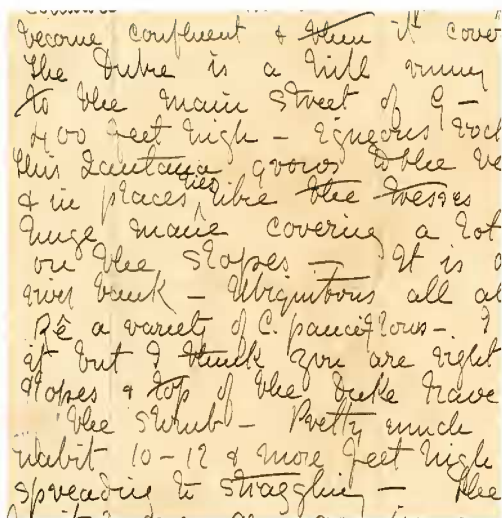 become confluent & then it cover
The Duke is a hill running
to the main street of G —
400 feet high — Igneous rock
this Lantana grows to the ve
& in places lies like the tresses
huge mane covering a lot
on the slopes — It is a
river bank — Ubiquitous all al
Be a variety of C. pauciflorus — I
it but I think you are right
slopes & top of the Duke have
the shrub — Pretty much
habit 10 – 12 & more feet high
spreading to straggling — the